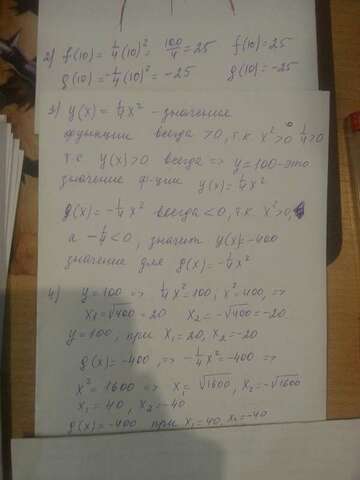 2) f(10) = 1/4(10)² = 100/4 = 25 f(10) = 25
g(10) = -1/4(10)² = -25 g(10) = -25
3) y(x) = 1/4x² - значение
функции всегда >0, т.к. x²>0 1/4>0
т.е y(x)>0 всегда => y=100-это
значение ф-ции y(x)=1/4x²
g(x) = -1/4x² всегда <0, т.к. x²>0,
а -1/4<0, значит y(x)=-400
значение для g(x)=-1/4x²
4) y=100 => 1/4x²=100; x²=400, =>
x₁=√400=20 x₂=-√400=-20
y=100, при x₁=20; x₂=-20
g(x)=-400, => -1/4x²=-400 =>
x²=1600 => x₁=√1600, x₂=-√1600
x₁=40, x₂=-40
g(x)=-400 при x₁=40, x₂=-40